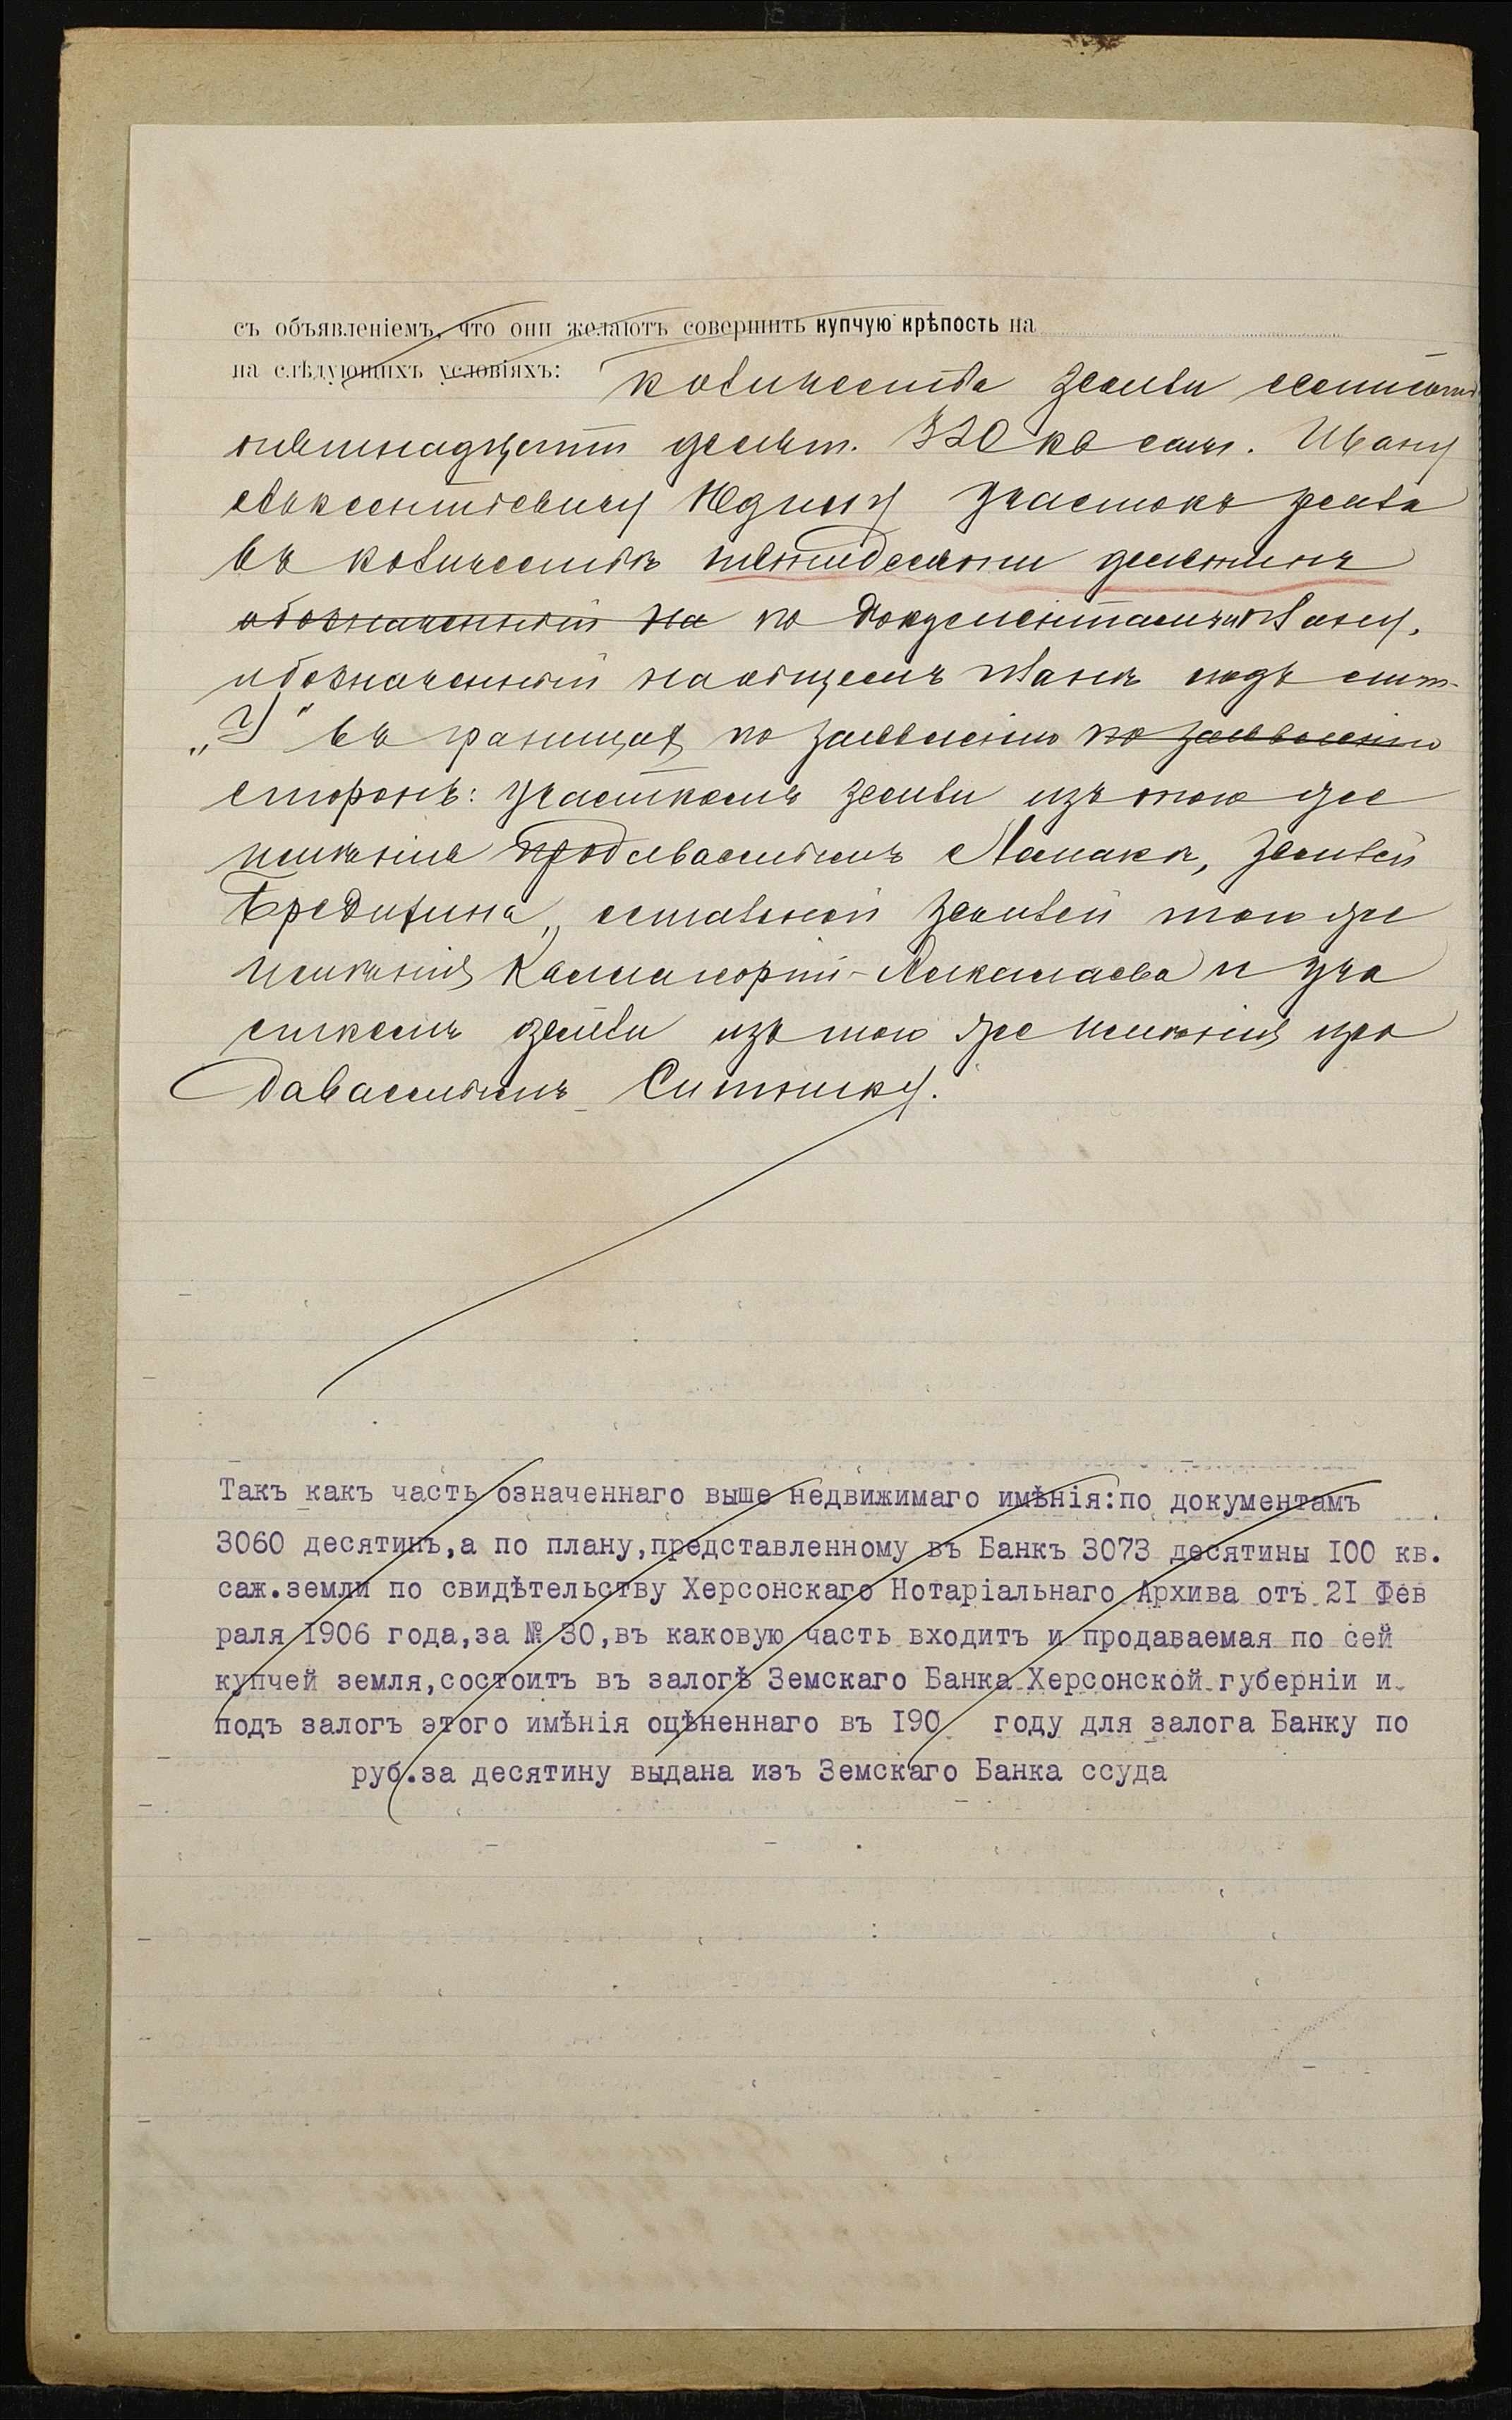 съ объявленіемъ, что они желаютъ совершить купчую крѣпость на
на слѣдующихъ условіяхъ: количества земли семисотъ
пятнадцати десят. 320 кв саж. Ивану
Авксентіевичу Юдину участокъ земли
въ количествѣ пятидесяти десятинъ
обозначенный на по документамъ и плану,
обозначенный на общемъ планѣ подъ лит.
въ границахъ по заявленію по заявленію
сторонъ: участкомъ земли изъ того же
имѣнія продаваемымъ Ламаке, землей
Бредихина, остальной землей того же
имѣнія и уча
сткомъ земли изъ того же имѣнія про
даваемымъ Ситнику.
Такъ какъ часть означеннаго выше недвижимаго имѣнія:по документамъ
3060 десятинъ,а по плану,представленному въ Банкъ 3073 десятины 100 кв.
саж.земли по свидѣтельству Херсонскаго Нотаріальнаго Архива отъ 21 Фев
раля 1906 года,за № 30,въ каковую часть входитъ и продаваемая по сей
купчей земля,состоитъ въ залогѣ Земскаго Банка Херсонской губерніи и
подъ залогъ этого имѣнія оцѣненнаго въ 190 году для залога Банку по
руб.за десятину выдана изъ Земскаго Банка ссуда